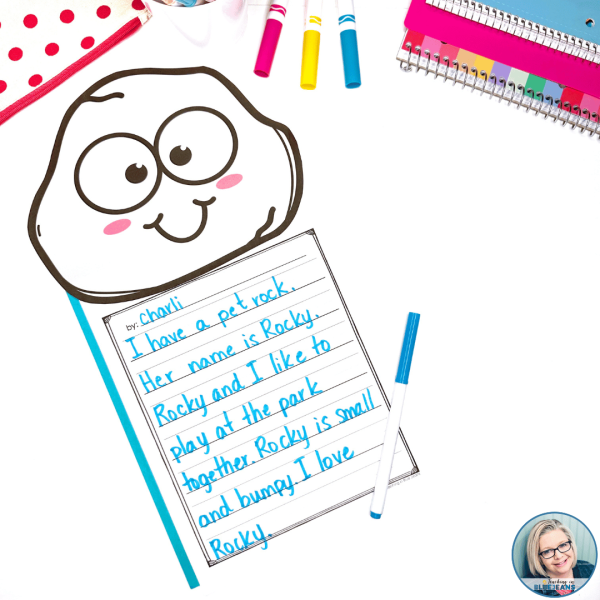 by: charli
I have a pet rock.
Her name is Rocky.
Rocky and I like to
play at the park
together. Rocky is small
and bumpy. I love
Rocky.
Teaching in
BLUE JEANS